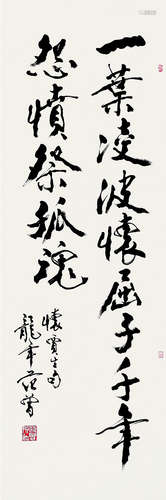 一葉凌波懷屈子千年
怨憤祭孤魂
懷賈生句
龍年范曾